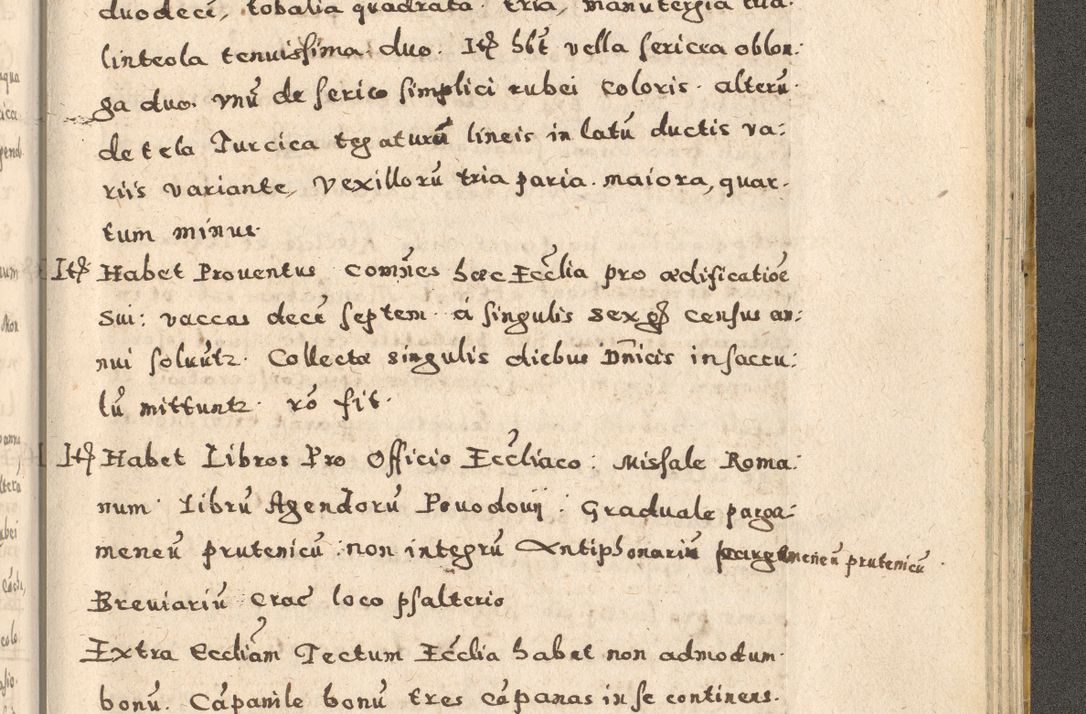 duodecē, tobalia quadrata tria, manutergia dua.
linteola tenuissima duo. Itē hbt vella sericea oblon:
ga duo. vnū de serico simplici rubei coloris. alterū.
de tela Turcica tegaturū lineis in latū ductis va:
riis variante, vexillorū tria paria. maiora, quar.
tum minus.
Itē Habet Prouentus comēs haec Eccłia pro aedificatioē
sui: vaccas decē septem á singulis sex census an:
nui soluūtr. Collectae singulis diebus Dnīcis in saccu:
lū mittuntr. ró fit.
Itē Habet Libros Pro Officio Eccłiaco: Missale Roma:
num. Librū Agendorū Pouodouij: Graduale parga:
meneū prutenicū: non integrū Antiphonariū pargameneū prutenicū.
Breuiariū Crac loco psalterio
Extra Eccłiam Tectum Eccłia habet non admodum.
bonū. Cápanile bonū tres cápanas in se continens.